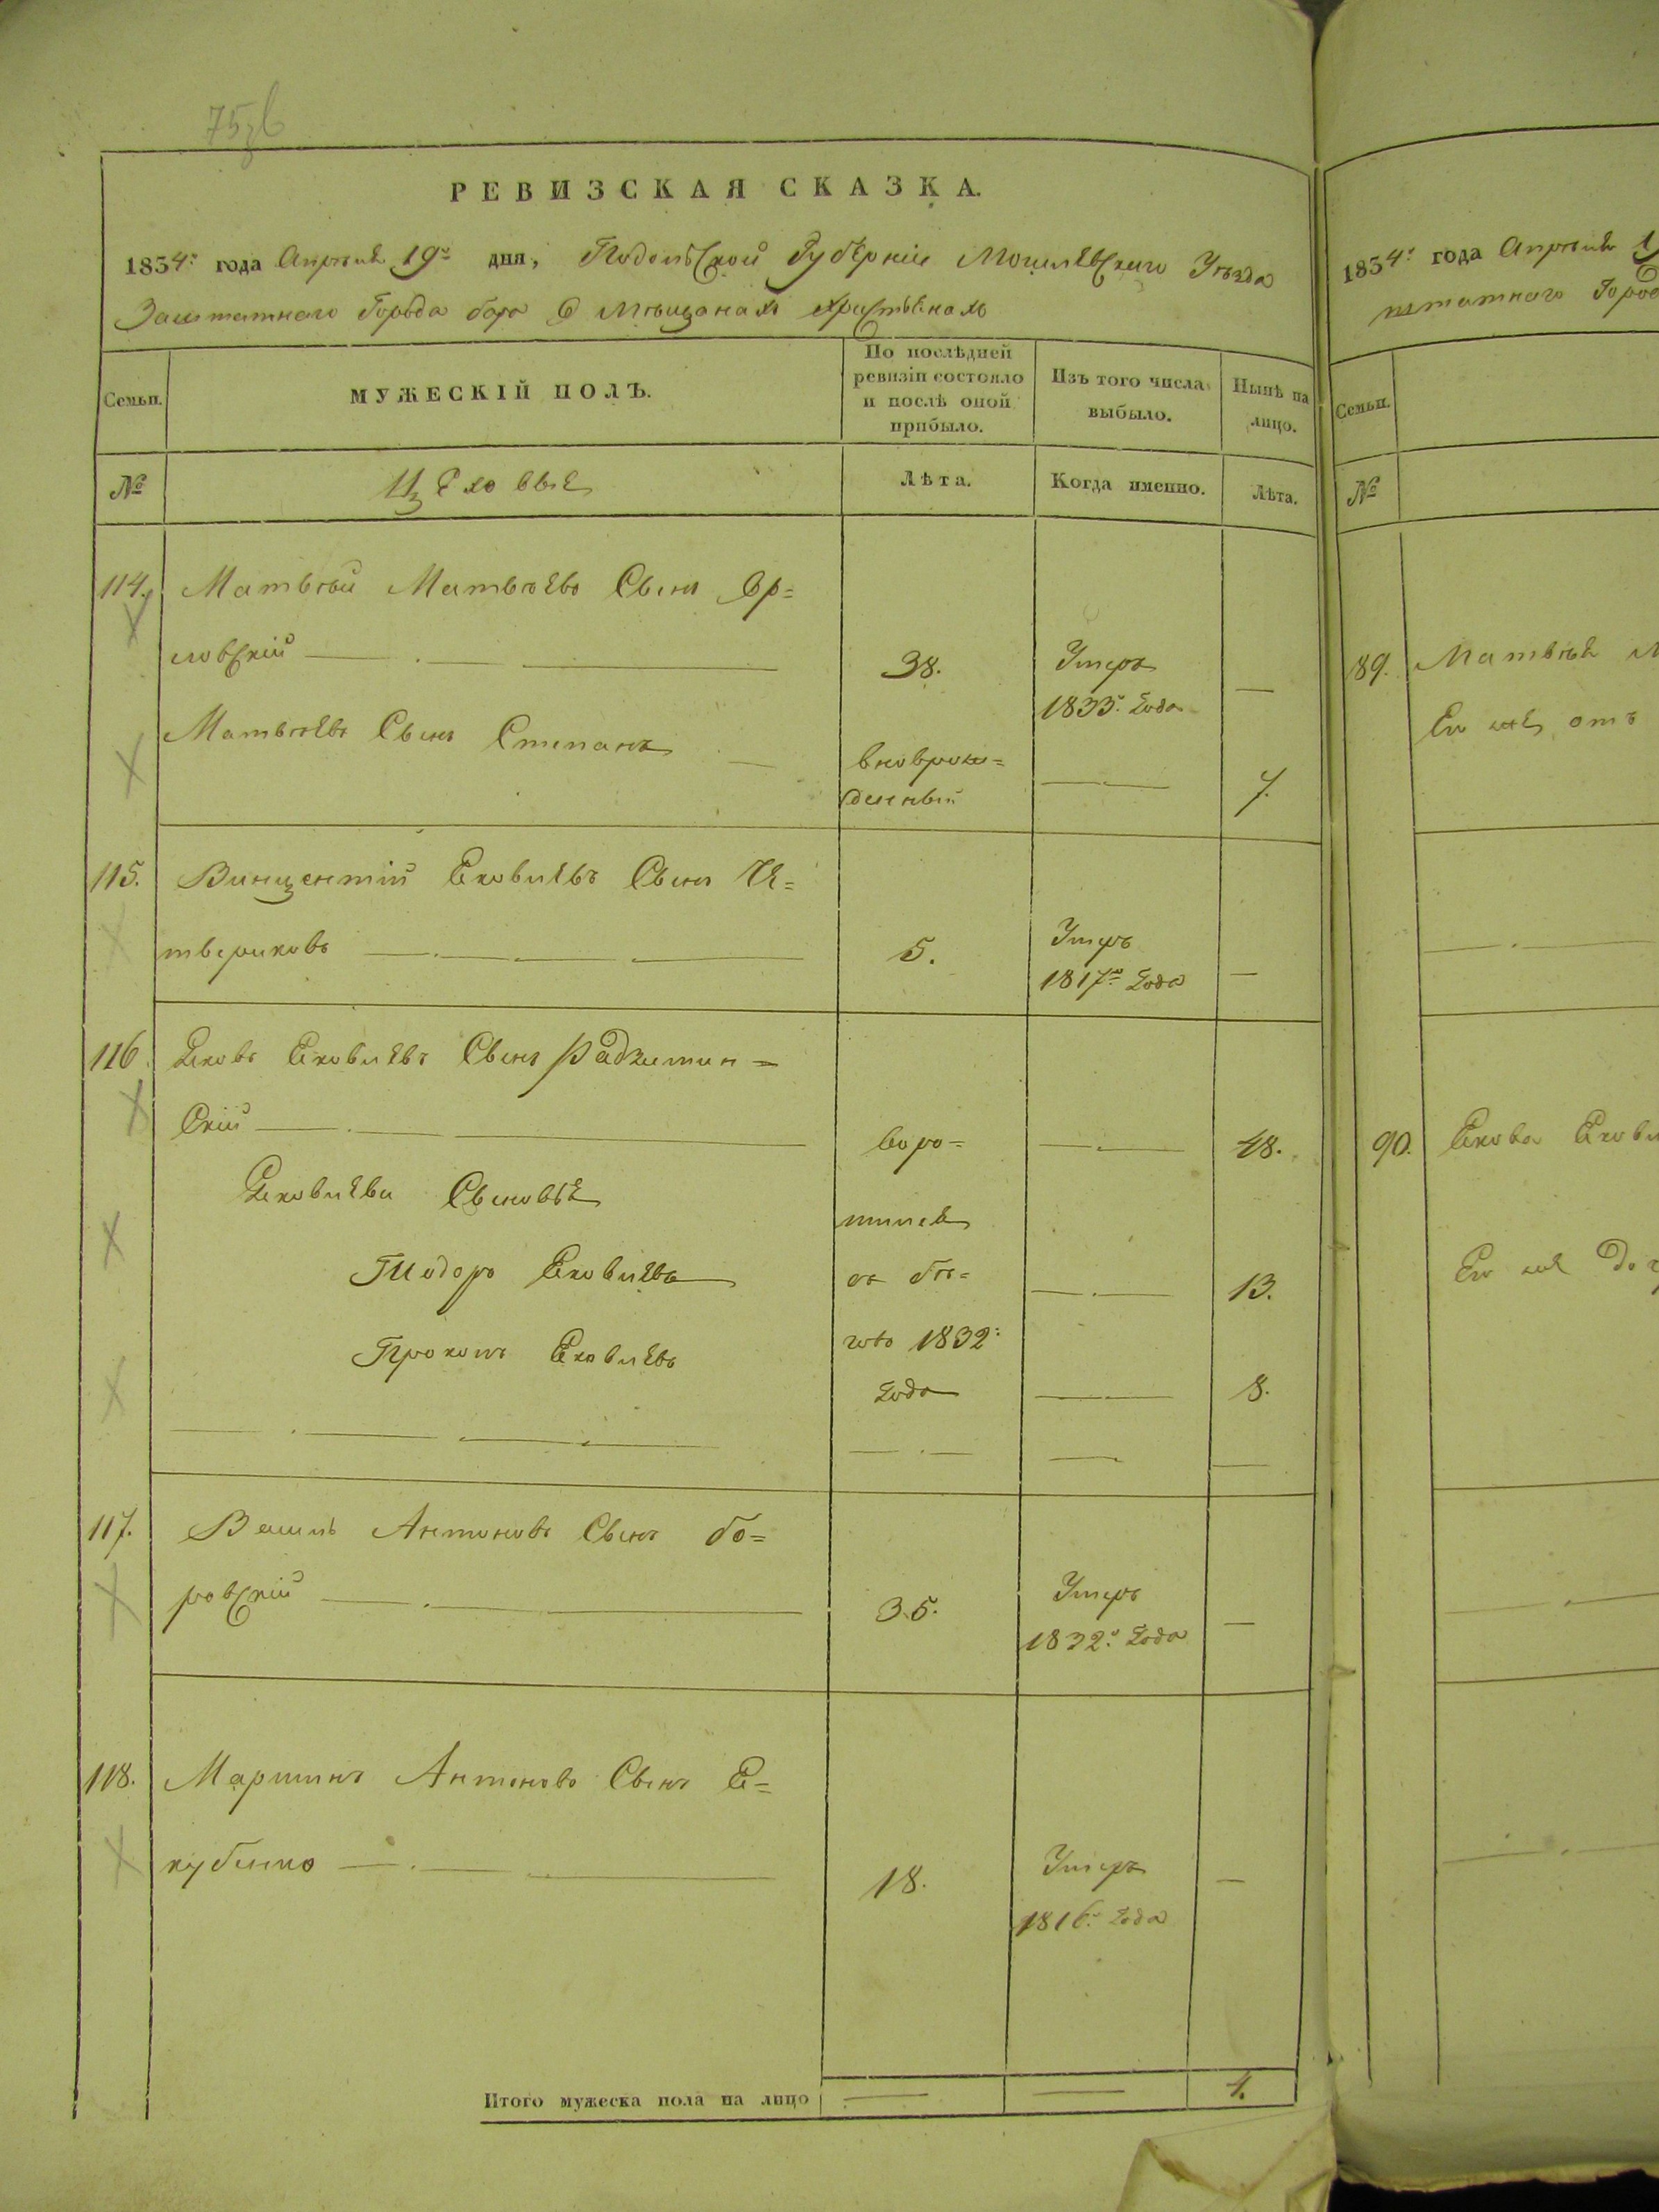 75об
РЕВИЗСКАЯ СКАЗКА.
1834: года Апрѣля 19го дня, Подольской Губерніи Могилевскаго Уѣзда
Заштатнаго Города бара О Мѣщанахъ христьянахъ
Семьи.
МУЖЕСКІЙ ПОЛЪ.
По послѣдней ревизіи состояло и послѣ оной прибыло.
Изъ того числа выбыло.
Нынѣ на лицо.
№
Цѣховые
Лѣта.
Когда именно.
Лѣта.
114. Матвѣй Матвѣевъ Сынъ Ор=
ловскій 38. Умеръ
1833: Года
Матвѣевъ Сынъ Степанъ вноврож=
денный 7.
115. Винцентій Яковлевъ Сынъ Че=
твериковъ 5. Умеръ
1817го Года
116. Яковъ Яковлевъ Сынъ
Скій воро= 48.
Яковлевы Сыновье
тился
Тиодоръ Яковлевъ 13.
Прокопъ Яковлевъ 1832:
Года 8.
117. Василь Антоновъ Сынъ бо=
ровскій 35. Умеръ
1832: Года
118. Мартинъ Антоновъ Сынъ Я=
кубенко 18. Умеръ
1816: Года
Итого мужеска пола на лицо 4.
1834: года Апрѣля
штатнаго Город
Семьи.
№
89. Матвѣя
Его же отъ
90. Якова
Его же